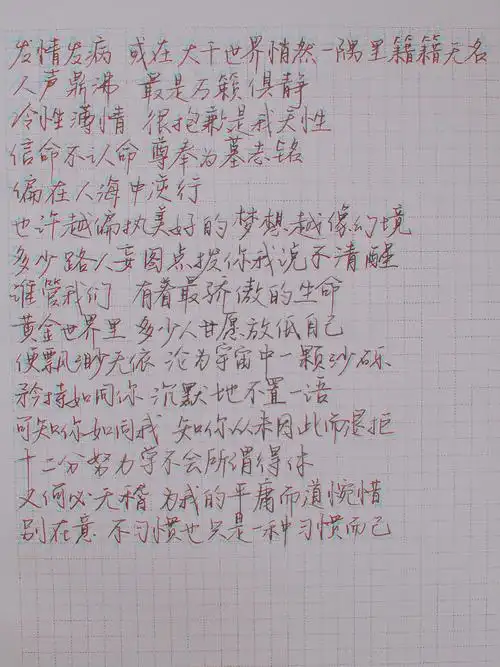 发情发病 或在大千世界悄然一隅里籍籍无名
人声鼎沸 最是万籁俱静
冷性薄情 很抱歉是我天性
信命不认命 尊奉为墓志铭
偏在人海中逆行
也许越偏执美好的梦想越像幻境
多少路人妄图点拨你我说不清醒
谁管我们 有着最骄傲的生命
黄金世界里 多少人甘愿放低自己
便飘渺无依 沦为宇宙中一颗沙砾
矜持如同你 沉默地不置一语
可知你如同我 知你从来因此而湿拒
十二分努力学不会所谓得体
又何必无稽 为我的平庸而道惋惜
别在意 不习惯也只是一种习惯而已